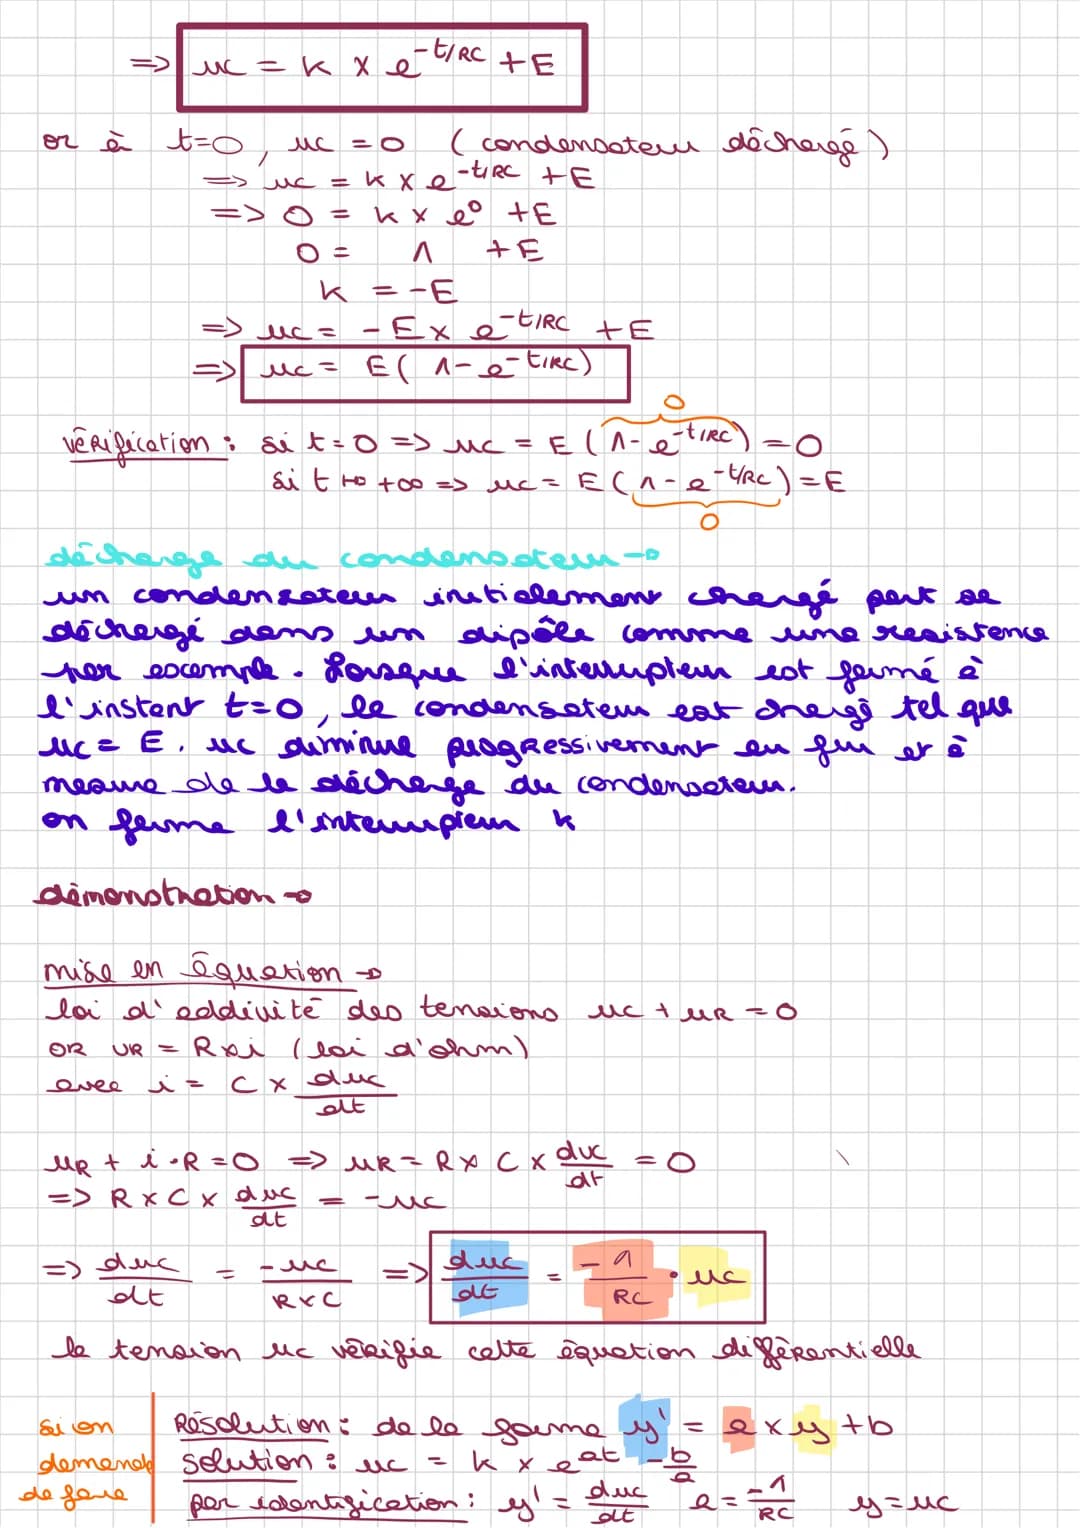 => uc = k x e^-t/RC + E
or à t=0, uc = 0 (condensateur déchargé)
=> uc = k x e^-t/RC + E
=> 0 = k x e^0 + E
0 = 1 + E
k = -E
=> uc = - E x e^-t/RC + E
=> uc = E ( 1 - e^-t/RC)
0
vérification : si t = 0 => uc = E ( 1 - e^-t/RC ) = 0
si t → +∞ => uc = E ( 1 - e^-t/RC ) = E
0
décharge du condensateur →
un condensateur initialement chargé peut se
déchargé dans un dipôle comme une resistence
par exemple. Lorsque l'interrupteur est fermé à
l'instant t=0, le condensateur est chargé tel que
uc = E. uc diminue progressivement au fur et à
mesure de la décharge du condensateur.
on ferme l'interrupteur k
démonstration →
mise en équation →
loi d'addivité des tensions uc + uR = 0
OR UR = R x i (loi d'ohm)
avec i = C x duc/dt
uR + i · R = 0 => uR = R x C x duc/dt = 0
=> R x C x duc/dt = -uc
=> duc/dt = -uc/RxC => duc/dt = -1/RC · uc
la tension uc vérifie cette équation différentielle
si on
demande
de faire
Résolution : de la forme y' = a x y + b
solution : uc = k x e^at - b/a
par identification : y' = duc/dt a = -1/RC y = uc